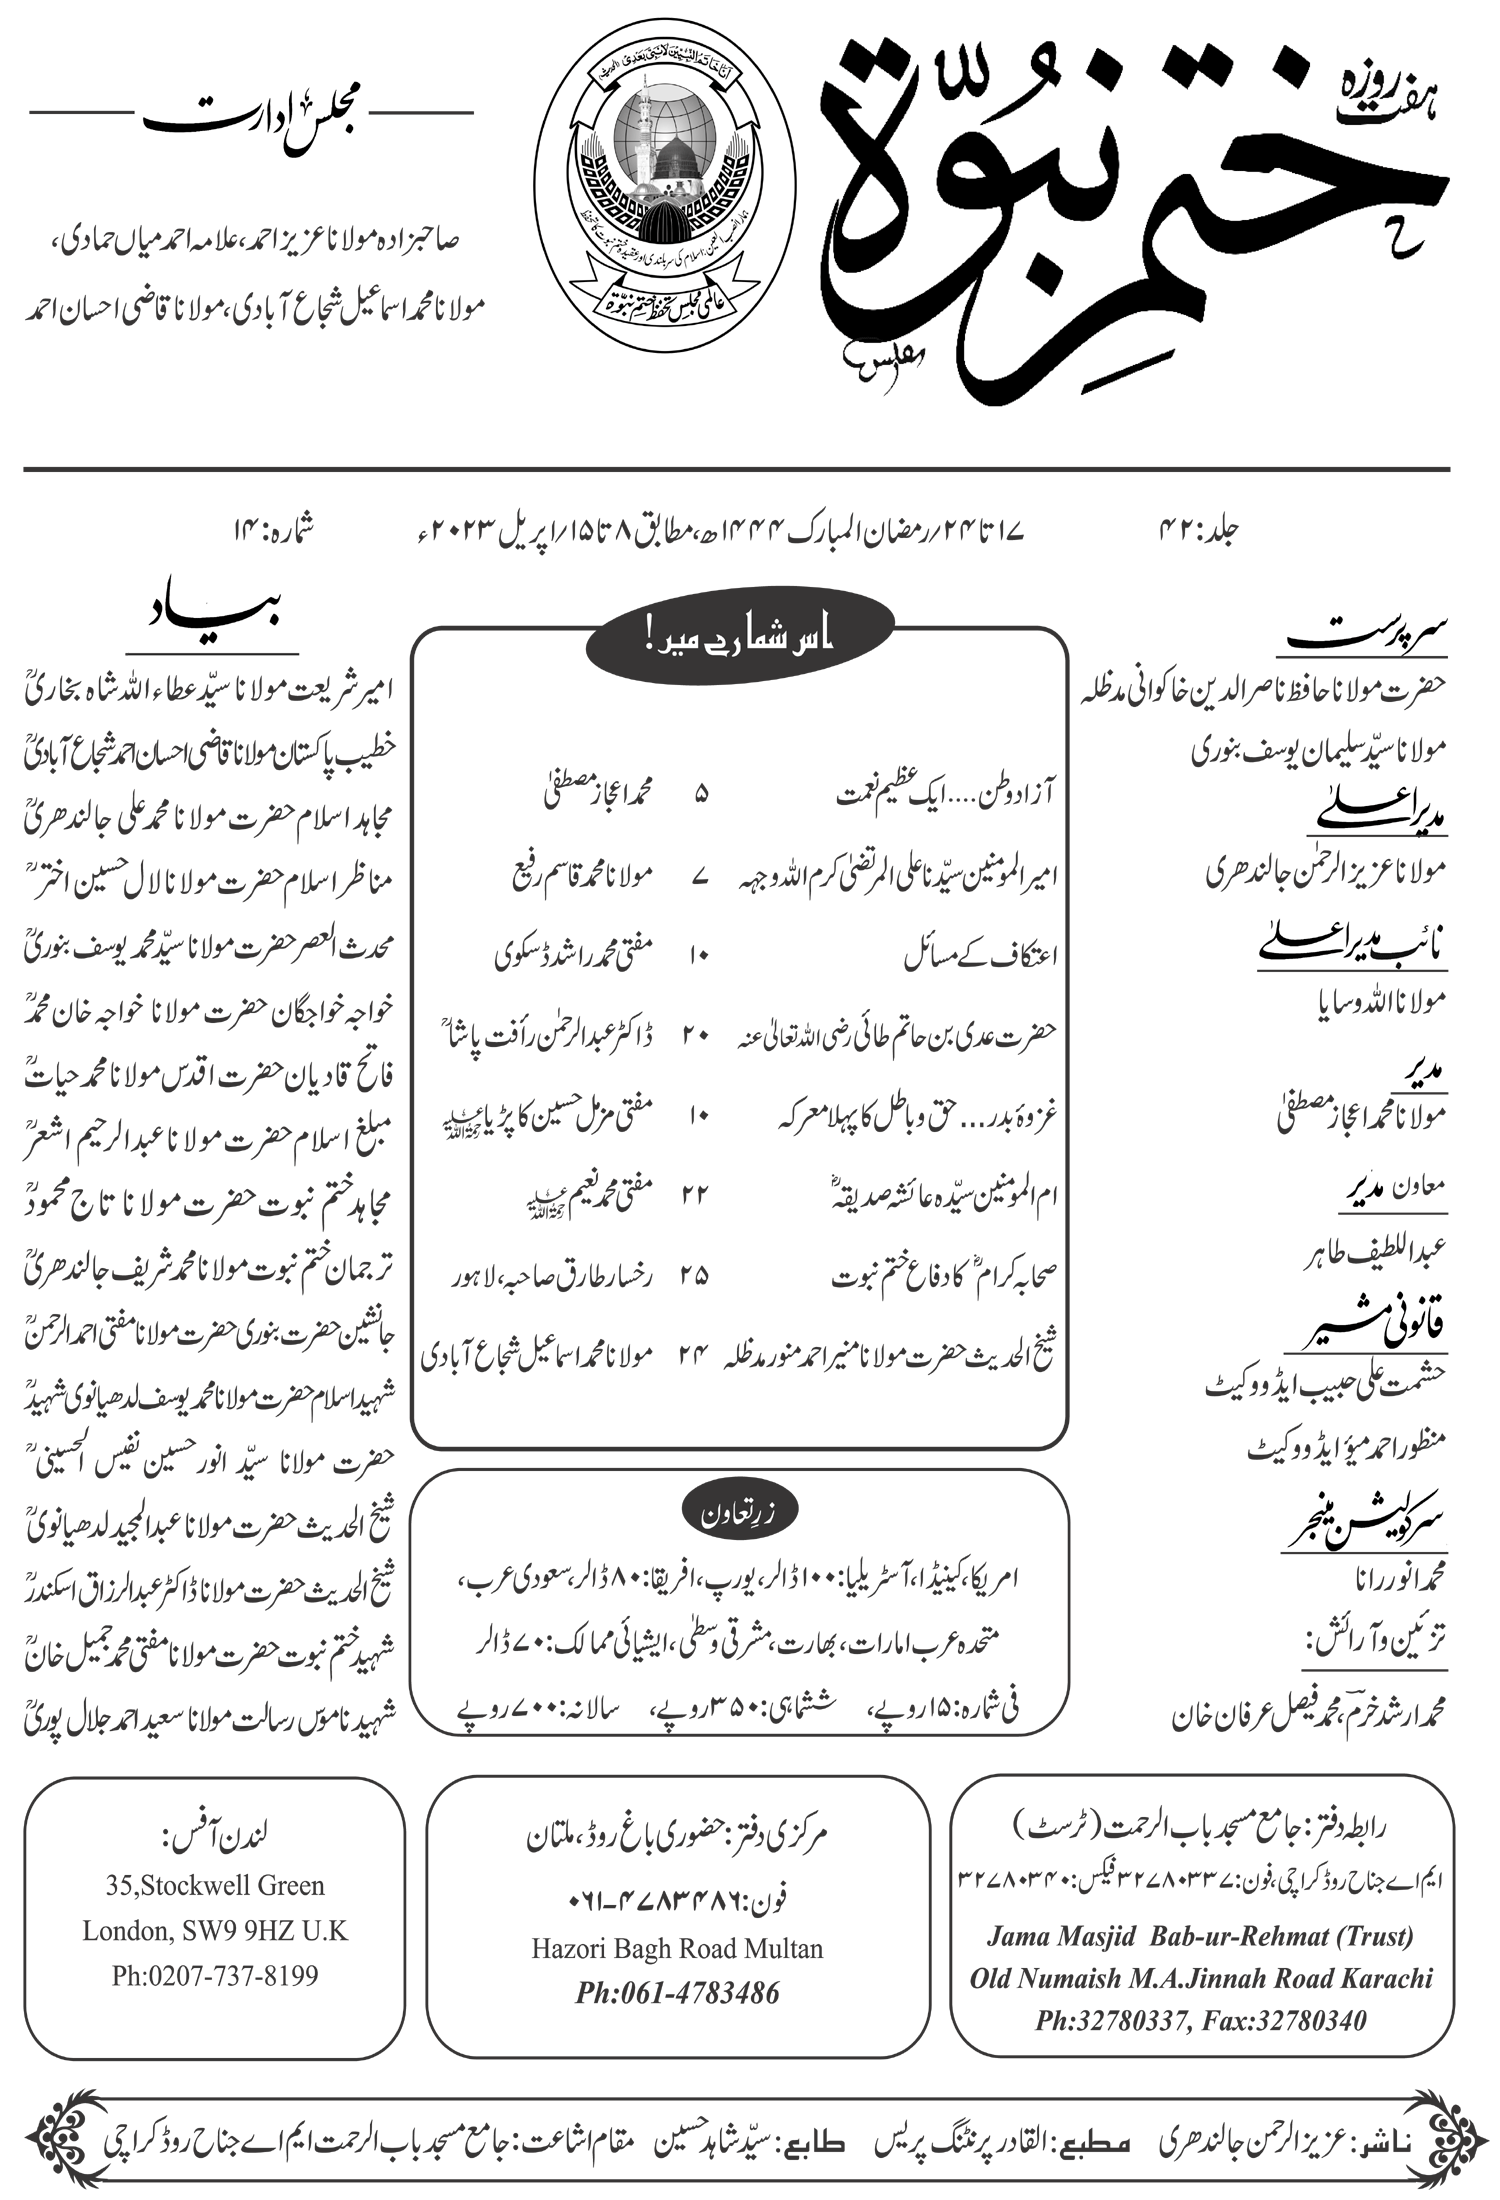 ہفت روزہ
ختم نبوۃ
انا خاتم النبیین لا نبی بعدی (الحدیث)
ہمارا نصب العین: اسلام کی سربلندی اور عقیدہ ختم نبوت کا تحفظ
عالمی مجلس تحفظ ختم نبوۃ
مجلس ادارت
صاحبزادہ مولانا عزیز احمد، علامہ احمد میاں حمادی،
مولانا محمد اسماعیل شجاع آبادی، مولانا قاضی احسان احمد
جلد: ۴۲ ۱۷ تا ۲۴/رمضان المبارک ۱۴۴۴ھ، مطابق ۸ تا ۱۵/اپریل ۲۰۲۳ء شمارہ: ۱۴
سرپرست
حضرت مولانا حافظ ناصر الدین خاکوانی مدظلہ
مولانا سیّد سلیمان یوسف بنوری
مدیر اعلےٰ
مولانا عزیز الرحمٰن جالندھری
نائب مدیر اعلےٰ
مولانا اللہ وسایا
مدیر
مولانا محمد اعجاز مصطفیٰ
معاون مدیر
عبداللطیف طاہر
قانونی مشیر
حشمت علی حبیب ایڈووکیٹ
منظور احمد میؤ ایڈووکیٹ
سرکولیشن منیجر
محمد انور رانا
تزئین و آرائش:
محمد ارشد خرم، محمد فیصل عرفان خان
اس شمارے میں!
آزاد وطن.... ایک عظیم نعمت ۵ محمد اعجاز مصطفیٰ
امیر المومنین سیّدنا علی المرتضیٰ کرم اللہ وجہہ ۷ مولانا محمد قاسم رفیع
اعتکاف کے مسائل ۱۰ مفتی محمد راشد ڈسکوی
حضرت عدی بن حاتم طائی رضی اللہ تعالیٰ عنہ ۲۰ ڈاکٹر عبدالرحمٰن رأفت پاشاؒ
غزوۂ بدر... حق و باطل کا پہلا معرکہ ۱۰ مفتی مزمل حسین کاپڑیا رحمۃ اللہ علیہ
ام المومنین سیّدہ عائشہ صدیقہؓ ۲۲ مفتی محمد نعیم رحمۃ اللہ علیہ
صحابہ کرامؓ کا دفاع ختم نبوت ۲۵ رخسار طارق صاحبہ، لاہور
شیخ الحدیث حضرت مولانا منیر احمد منور مدظلہ ۲۴ مولانا محمد اسماعیل شجاع آبادی
زرِتعاون
امریکا، کینیڈا، آسٹریلیا: ۱۰۰ ڈالر، یورپ، افریقا: ۸۰ ڈالر، سعودی عرب،
متحدہ عرب امارات، بھارت، مشرق وسطیٰ، ایشیائی ممالک: ۷۰ ڈالر
فی شمارہ: ۱۵ روپے، ششماہی: ۳۵۰ روپے، سالانہ: ۷۰۰ روپے
بیاد
امیر شریعت مولانا سیّد عطاء اللہ شاہ بخاریؒ
خطیب پاکستان مولانا قاضی احسان احمد شجاع آبادیؒ
مجاہد اسلام حضرت مولانا محمد علی جالندھریؒ
مناظر اسلام حضرت مولانا لال حسین اخترؒ
محدث العصر حضرت مولانا سیّد محمد یوسف بنوریؒ
خواجہ خواجگان حضرت مولانا خواجہ خان محمدؒ
فاتح قادیان حضرت اقدس مولانا محمد حیاتؒ
مبلغ اسلام حضرت مولانا عبدالرحیم اشعرؒ
مجاہد ختم نبوت حضرت مولانا تاج محمودؒ
ترجمان ختم نبوت مولانا محمد شریف جالندھریؒ
جانشین حضرت بنوری حضرت مولانا مفتی احمد الرحمنؒ
شہید اسلام حضرت مولانا محمد یوسف لدھیانوی شہیدؒ
حضرت مولانا سیّد انور حسین نفیس الحسینیؒ
شیخ الحدیث حضرت مولانا عبدالمجید لدھیانویؒ
شیخ الحدیث حضرت مولانا ڈاکٹر عبدالرزاق اسکندرؒ
شہید ختم نبوت حضرت مولانا مفتی محمد جمیل خانؒ
شہید ناموس رسالت مولانا سعید احمد جلال پوریؒ
رابطہ دفتر: جامع مسجد باب الرحمت (ٹرسٹ)
ایم اے جناح روڈ کراچی، فون: ۳۲۷۸۰۳۳۷ فیکس: ۳۲۷۸۰۳۴۰
Jama Masjid Bab-ur-Rehmat (Trust)
Old Numaish M.A.Jinnah Road Karachi
Ph:32780337, Fax:32780340
مرکزی دفتر: حضوری باغ روڈ، ملتان
فون: ۰۶۱-۴۷۸۳۴۸۶
Hazori Bagh Road Multan
Ph:061-4783486
لندن آفس:
35,Stockwell Green
London, SW9 9HZ U.K
Ph:0207-737-8199
ناشر: عزیز الرحمن جالندھری مطبع: القادر پرنٹنگ پریس طابع: سیّد شاہد حسین مقام اشاعت: جامع مسجد باب الرحمت ایم اے جناح روڈ کراچی